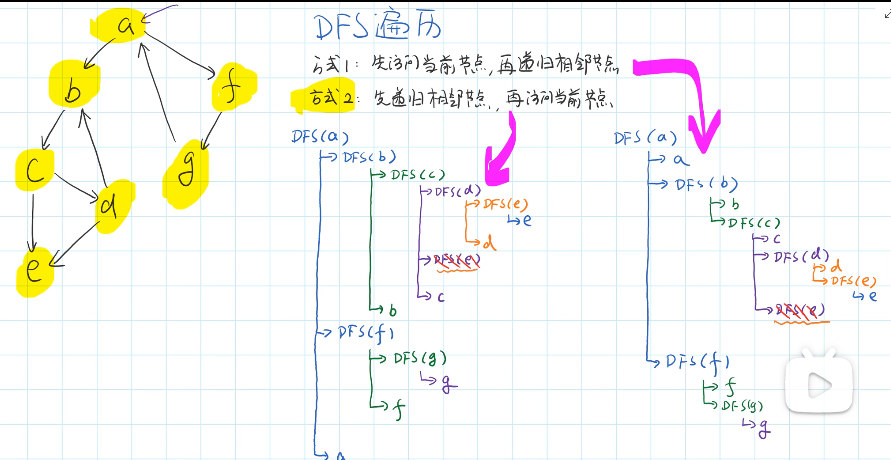 DFS遍历
方式1：先访问当前节点，再递归相邻节点
方式2：先递归相邻节点，再访问当前节点
a
b
f
c
d
g
e
DFS(a)
DFS(b)
DFS(c)
DFS(d)
DFS(e)
e
d
DFS(e)
c
b
DFS(f)
DFS(g)
g
f
DFS(a)
a
DFS(b)
b
DFS(c)
c
DFS(d)
d
DFS(e)
e
DFS(e)
DFS(f)
f
DFS(g)
g